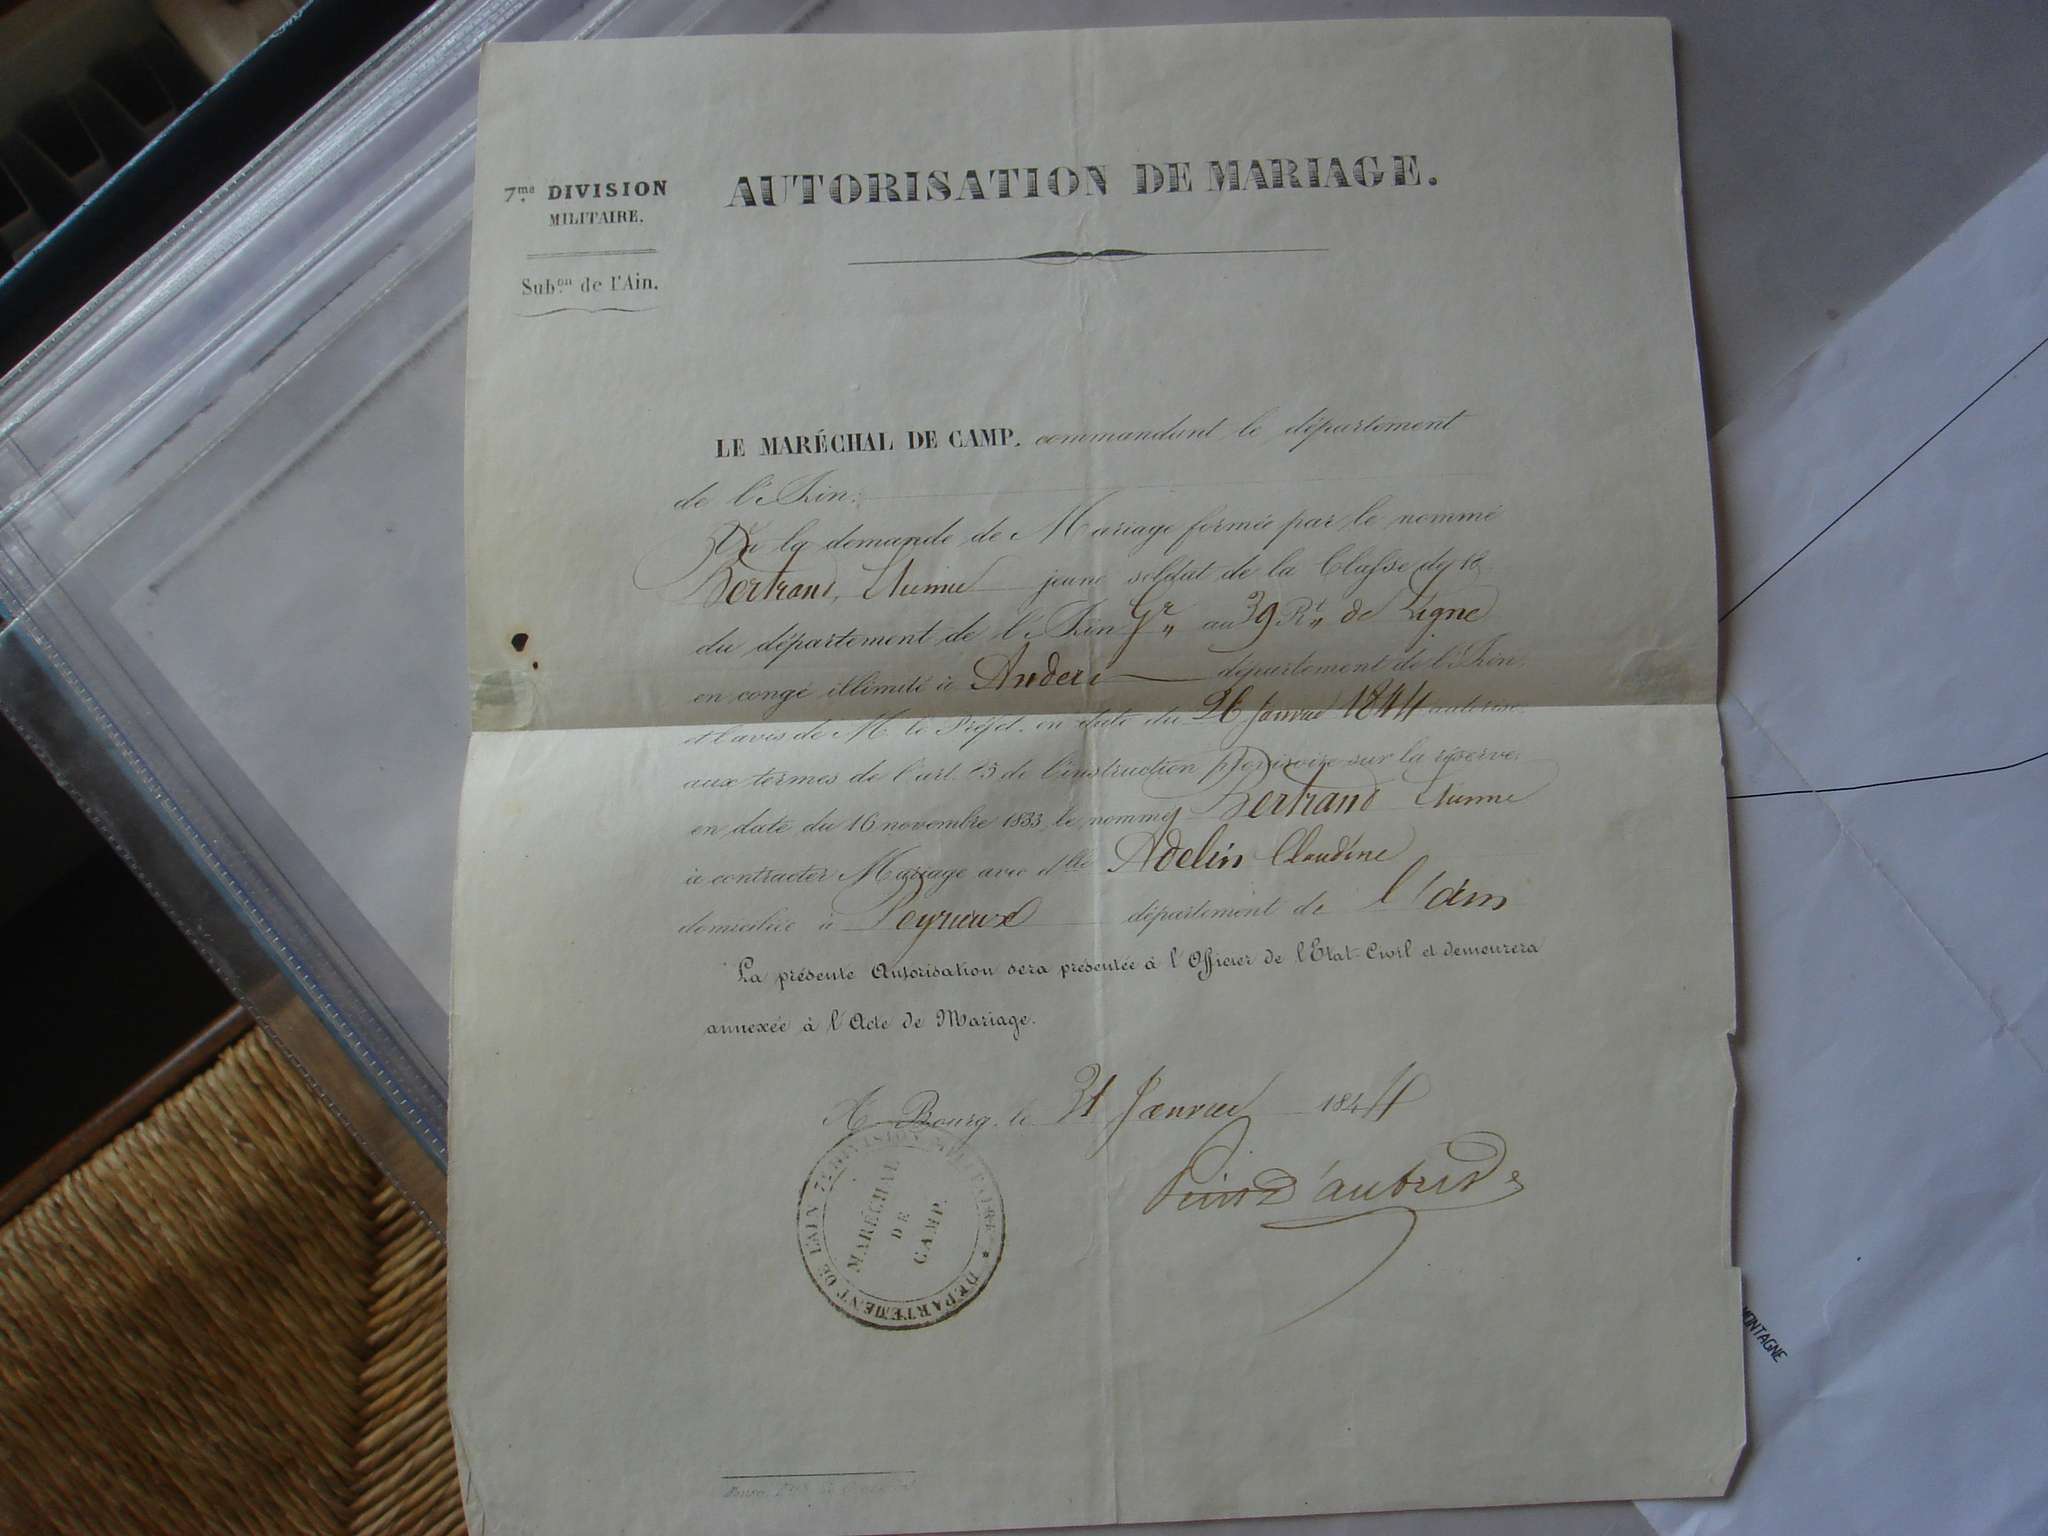 7.me DIVISION
MILITAIRE.
Sub.on de l'Ain.
AUTORISATION DE MARIAGE.
LE MARÉCHAL DE CAMP, commandant le département
de l'Ain;
Vu la demande de Mariage formée par le nommé
Bertrand, Etienne jeune soldat de la Classe de 18
du département de l'Ain au 39 Rt de Ligne
en congé illimité à Andert département de l'Ain
et l'avis de Mr le Préfet, en date du 26 Janvier 1844 autorise
aux termes de l'art. 25 de l'instruction provisoire sur la réserve
en date du 16 novembre 1833, le nommé Bertrand Etienne
à contracter Mariage avec dlle Adelin Claudine
domiciliée à Peyrieux département de l'ain
La présente Autorisation sera présentée à l'Officier de l'Etat-Civil et demeurera
annexée à l'Acte de Mariage.
A Bourg, le 31 Janvier 1844
7e DIVISION MILITAIRE * DEPARTEMENT DE L'AIN
MARÉCHAL
DE
CAMP.
MONTAGNE